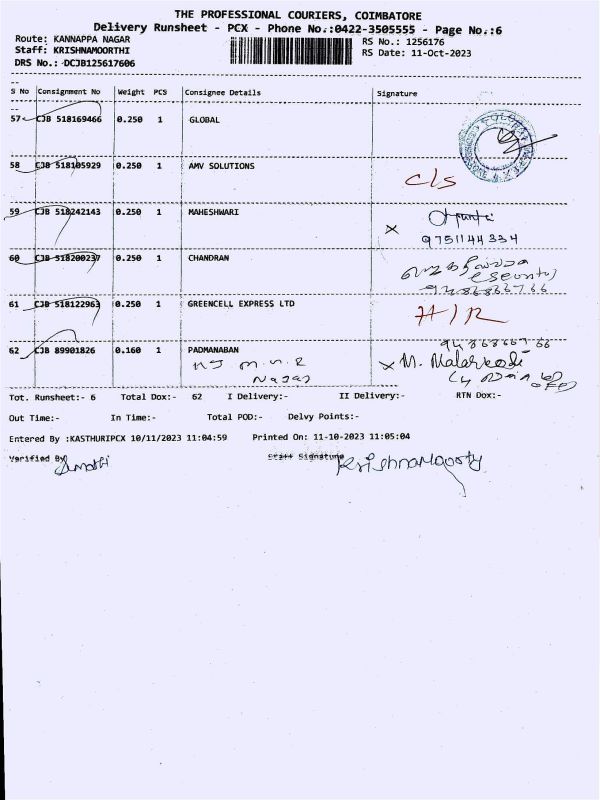 THE PROFESSIONAL COURIERS, COIMBATORE
Delivery Runsheet - PCX - Phone No.:0422-3505555 - Page No.:6
Route: KANNAPPA NAGAR
RS No.: 1256176
Staff: KRISHNAMOORTHI
RS Date: 11-Oct-2023
DRS No.: DCJB125617606
S No Consignment No Weight PCS Consignee Details Signature
57 CJB 518169466 0.250 1 GLOBAL
58 CJB 518105929 0.250 1 AMV SOLUTIONS C/s
59 CJB 518242143 0.250 1 MAHESHWARI
X 9751144334
60 CJB 518200237 0.250 1 CHANDRAN
61 CJB 518122963 0.250 1 GREENCELL EXPRESS LTD
62 CJB 89901826 0.160 1 PADMANABAN
X M. Malarkodi
Nagar
Tot. Runsheet:- 6 Total Dox:- 62 I Delivery:- II Delivery:- RTN Dox:-
Out Time:- In Time:- Total POD:- Delvy Points:-
Entered By :KASTHURIPCX 10/11/2023 11:04:59 Printed On: 11-10-2023 11:05:04
Verified By Staff Signature KrishnaMoorty